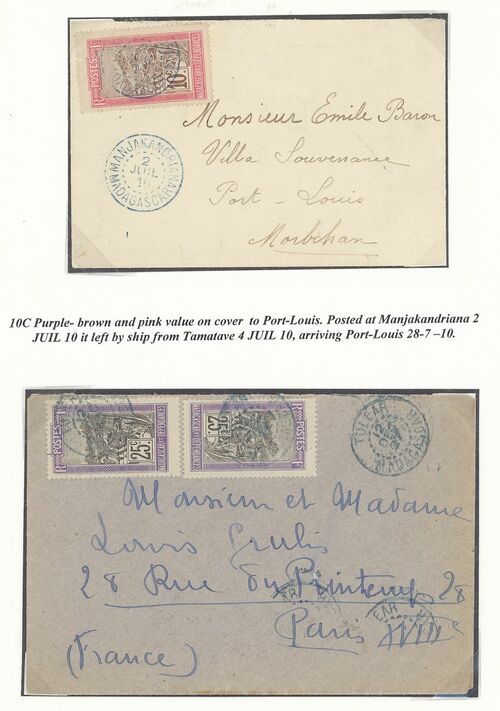 R POSTES F
10 c
MADAGASCAR ET DEPENDANCES
MANJAKANDRIANA
2
JUIL
10
MADAGASCAR
Monsieur Emile Baron
Villa Souvenance
Port-Louis
Morbihan
10C Purple- brown and pink value on cover to Port-Louis. Posted at Manjakandriana 2
JUIL 10 it left by ship from Tamatave 4 JUIL 10, arriving Port-Louis 28-7 –10.
R POSTES F
25 c
MADAGASCAR ET DEPENDANCES
R POSTES F
25 c
MADAGASCAR ET DEPENDANCES
TULEAR
MADAGASCAR
Monsieur et Madame
Louis
28 Rue du Printemps 28
Paris XVIIe
(France)
EAR
EAR